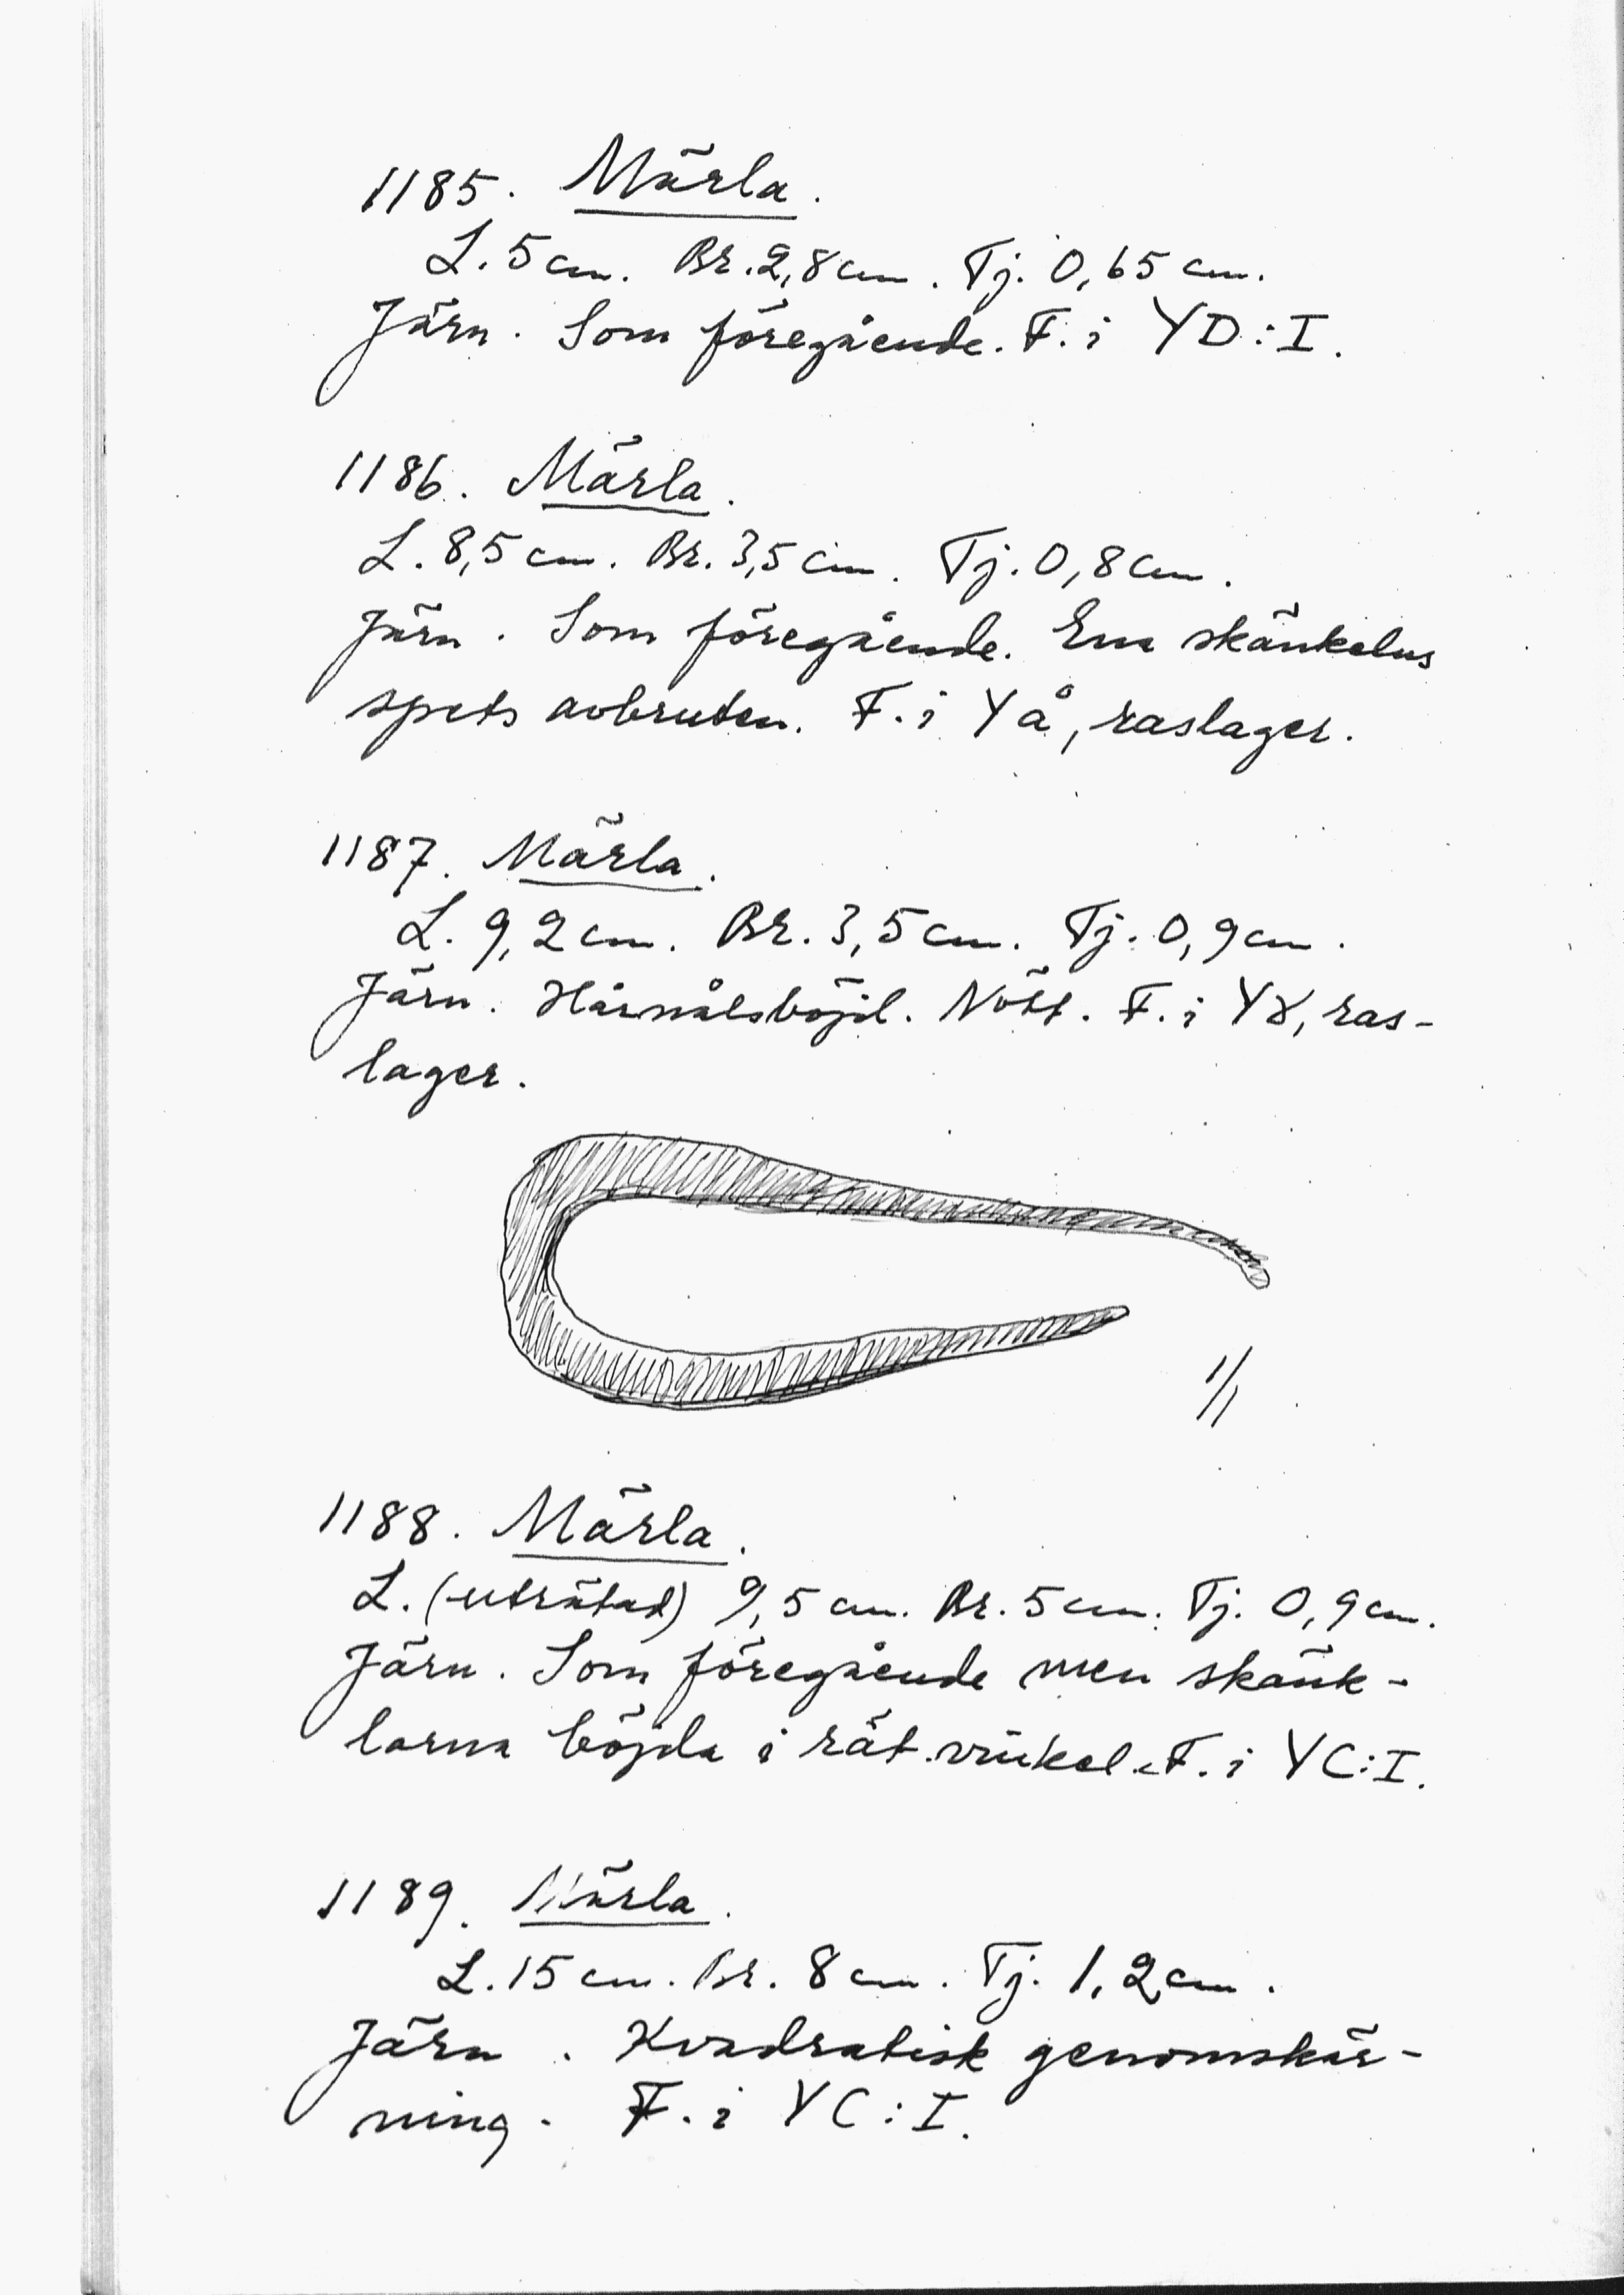 1185. Märla.
L. 5 cm. Br. 2,8 cm. Tj. 0,65 cm.
Järn. Som föregående. F. i YD:I.
1186. Märla.
L. 8,5 cm. Br. 3,5 cm. Tj. 0,8 cm.
Järn. Som föregående. Ena skänkelns
spets avbruten. F. i YÅ, raslager.
1187. Märla.
L. 9,2 cm. Br. 3,5 cm. Tj. 0,9 cm.
Järn. Hårnålsböjd. Nött. F. i ras-
lager.
1/1
1188. Märla.
L. (uträtad) 9,5 cm. Br. 5 cm. Tj. 0,9 cm.
Järn. Som föregående men skänk-
larna böjda i rät vinkel. F. i YC:I.
1189. Märla.
L. 15 cm. Br. 8 cm. Tj. 1,2 cm.
Järn. Kvadratisk genomskär-
ning. F. i YC:I.